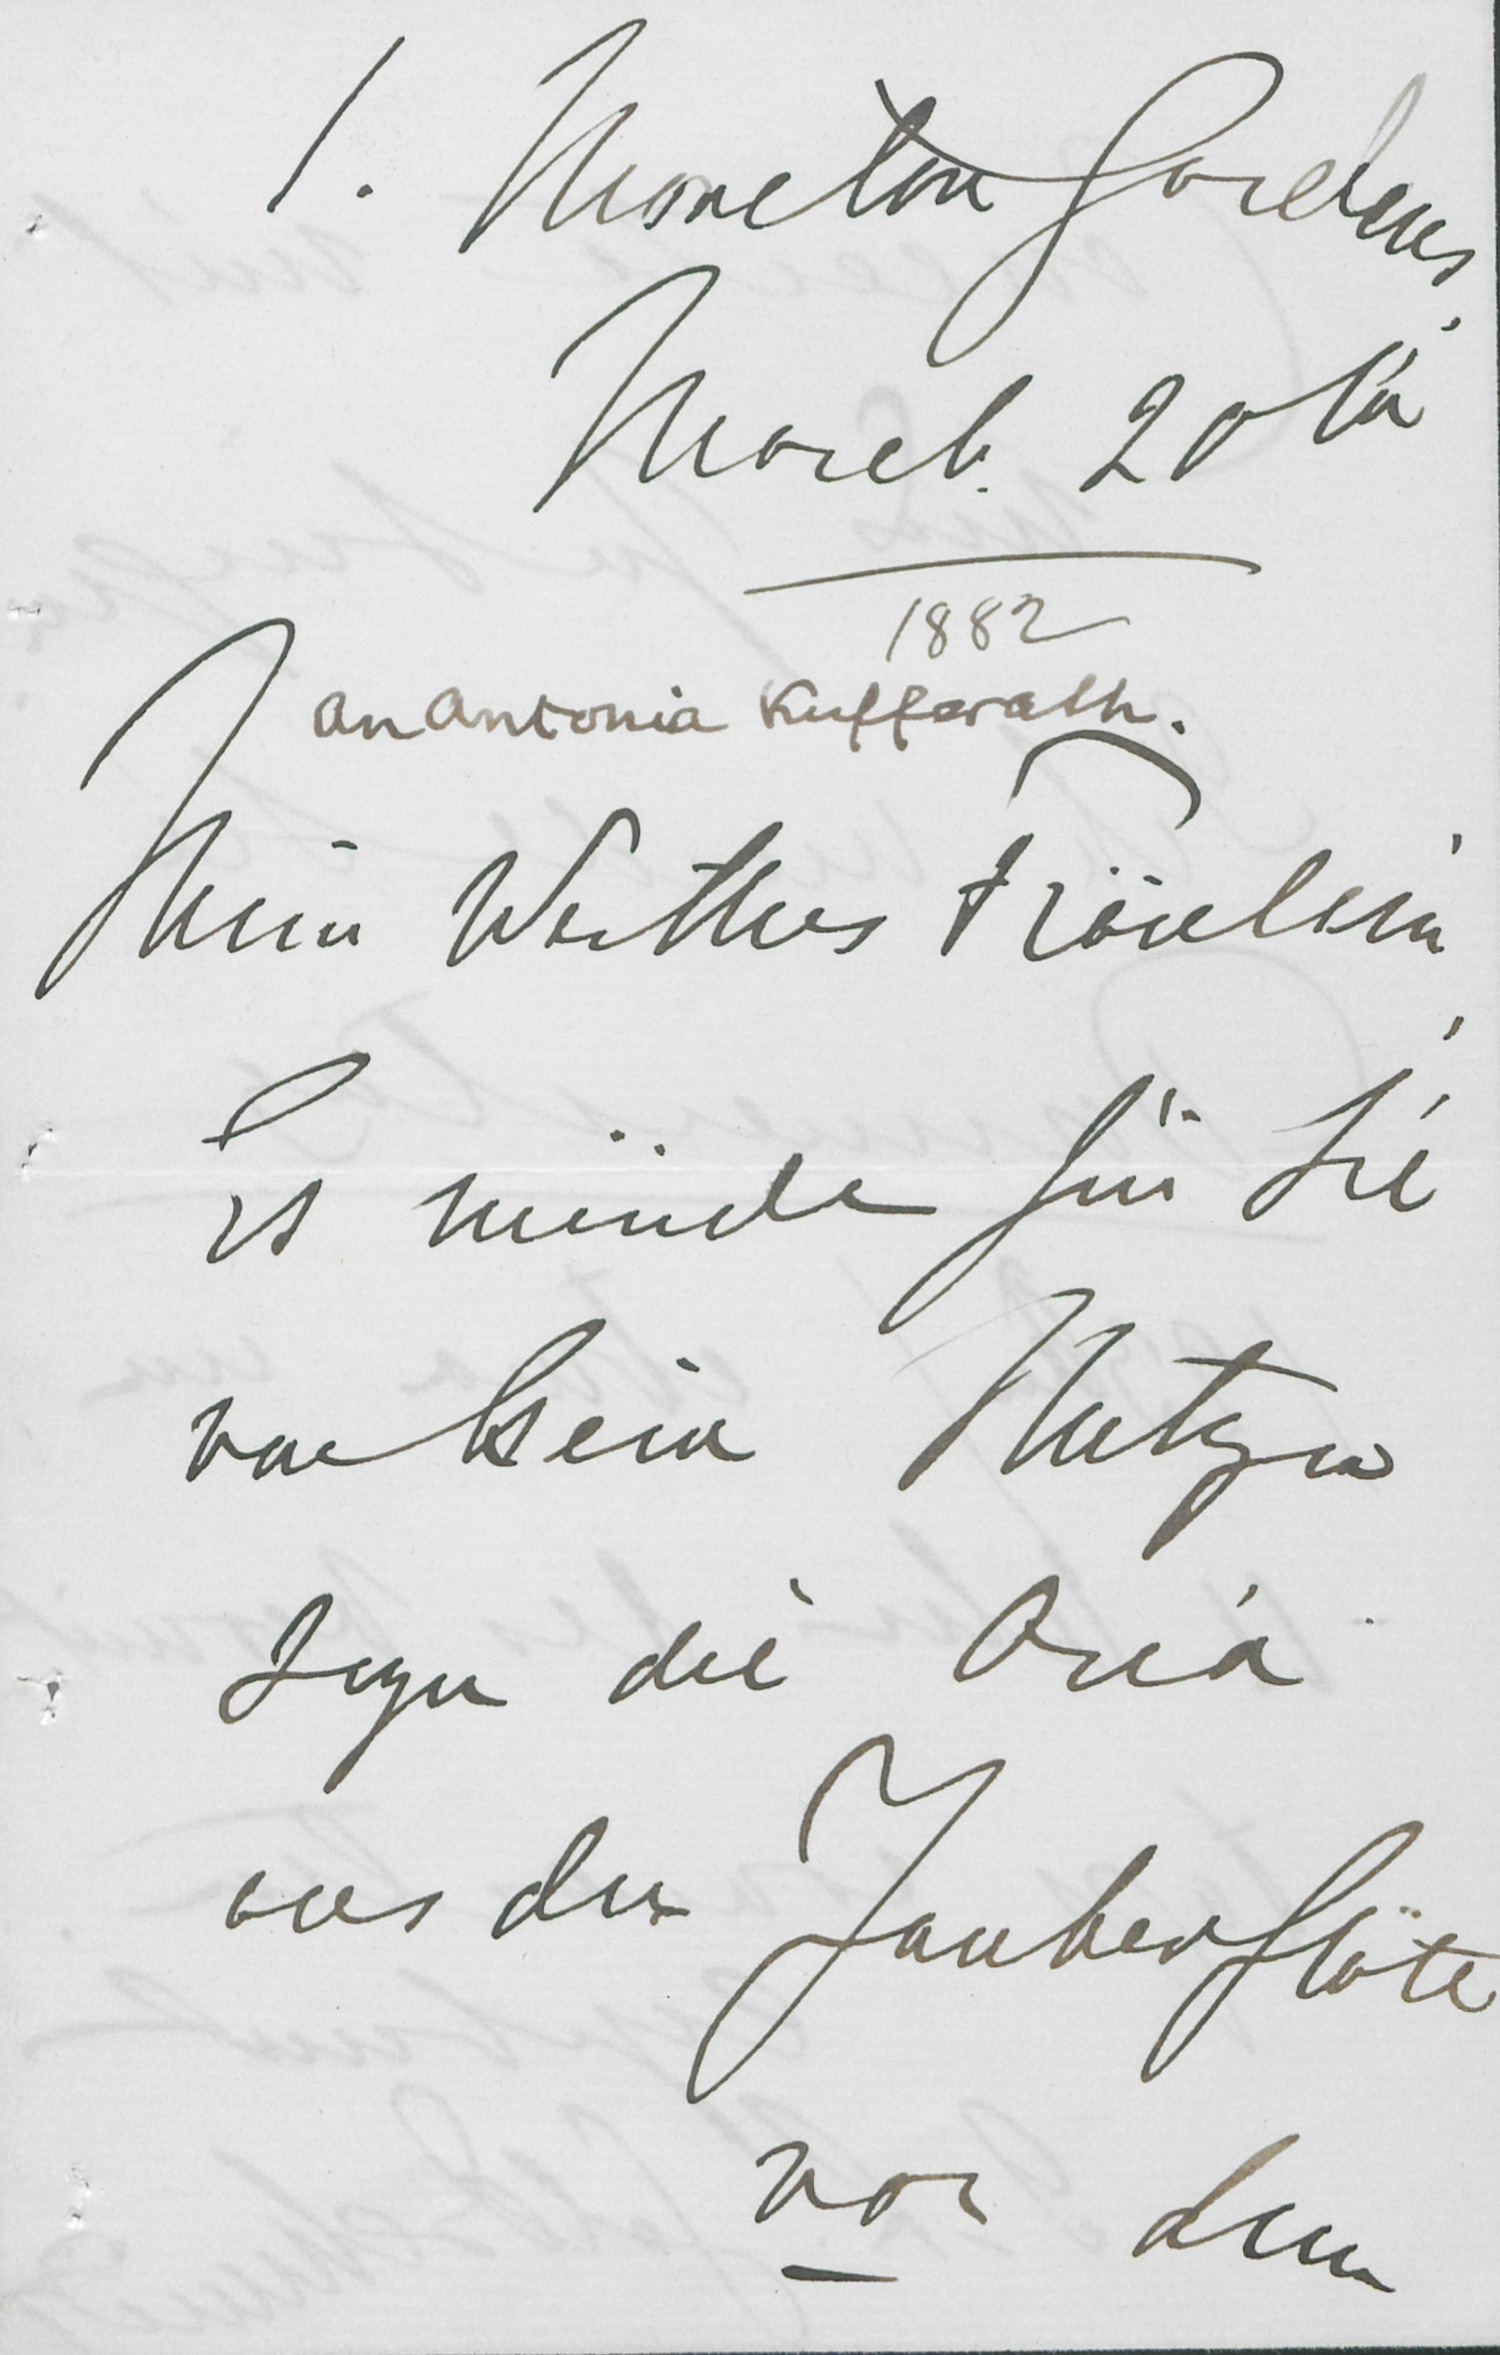 1. Moreton Gardens,
March 20th
1882
an Antonia Kufferath.
Mein Werthes Fräulein,
Es würde für Sie
von kein Nutzen
seyn die Aria
aus der Zauberflöte
vor dem